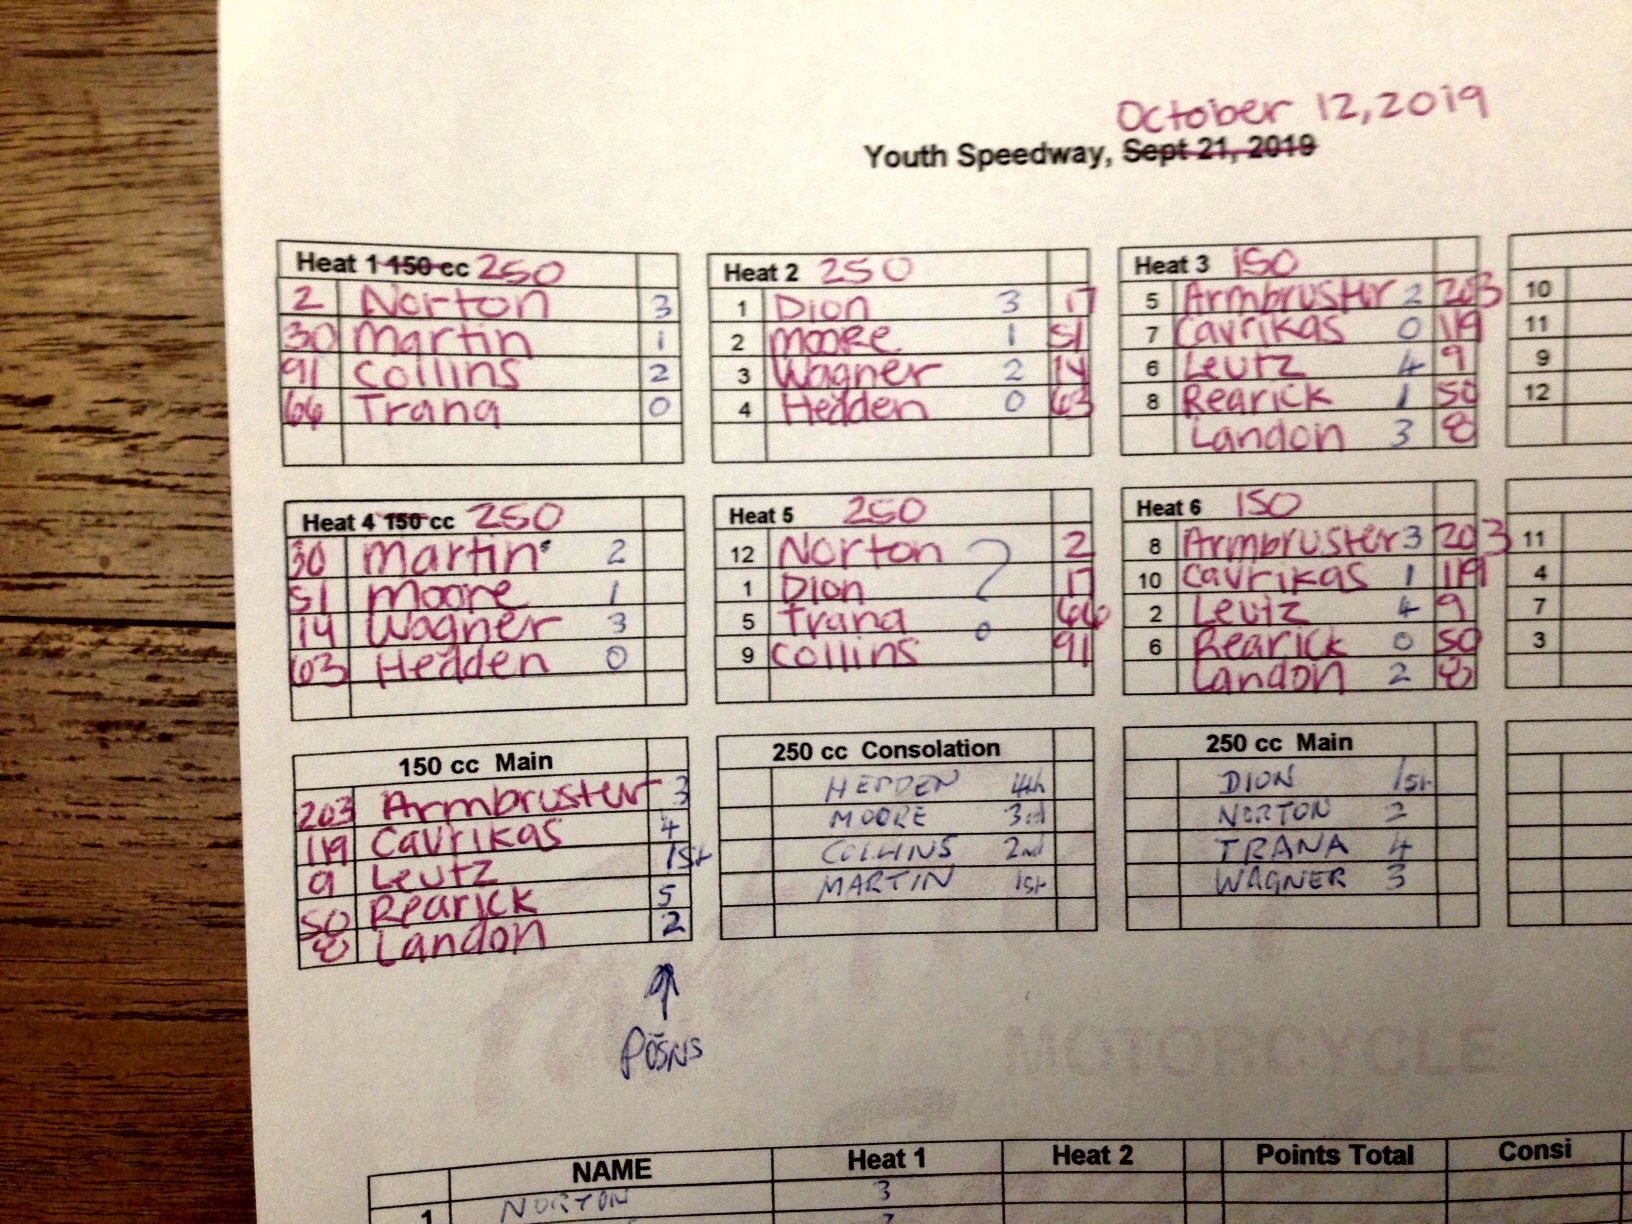 October 12, 2019
Youth Speedway, Sept 21, 2019
Heat 1 150 cc 250
2 Norton 3
30 Martin 1
91 Collins 2
66 Trana 0
Heat 2 250
1 Dion 3 17
2 Moore 1 51
3 Wagner 2 14
4 Hedden 0 63
Heat 3 150
5 Armbruster 2 203
7 Cavrikas 0 119
6 Leutz 4 9
8 Rearick 1 50
Landon 3 8
10
11
9
12
Heat 4 150 cc 250
30 Martin 2
51 Moore 1
14 Wagner 3
63 Hedden 0
Heat 5 250
12 Norton 2
1 Dion 17
5 Trana 66
9 Collins 0 91
Heat 6 150
8 Armbruster 3 203
10 Cavrikas 1 119
2 Leutz 4 9
6 Rearick 0 50
Landon 2 8
11
4
7
3
150 cc Main
203 Armbruster 3
119 Cavrikas 4
9 Leutz 1st
50 Rearick 5
8 Landon 2
POSNS
250 cc Consolation
HEDDEN 4th
MOORE 3rd
COLLINS 2nd
MARTIN 1st
250 cc Main
DION 1st
NORTON 2
TRANA 4
WAGNER 3
MOTORCYCLE
NAME Heat 1 Heat 2 Points Total Consi
1 NORTON 3